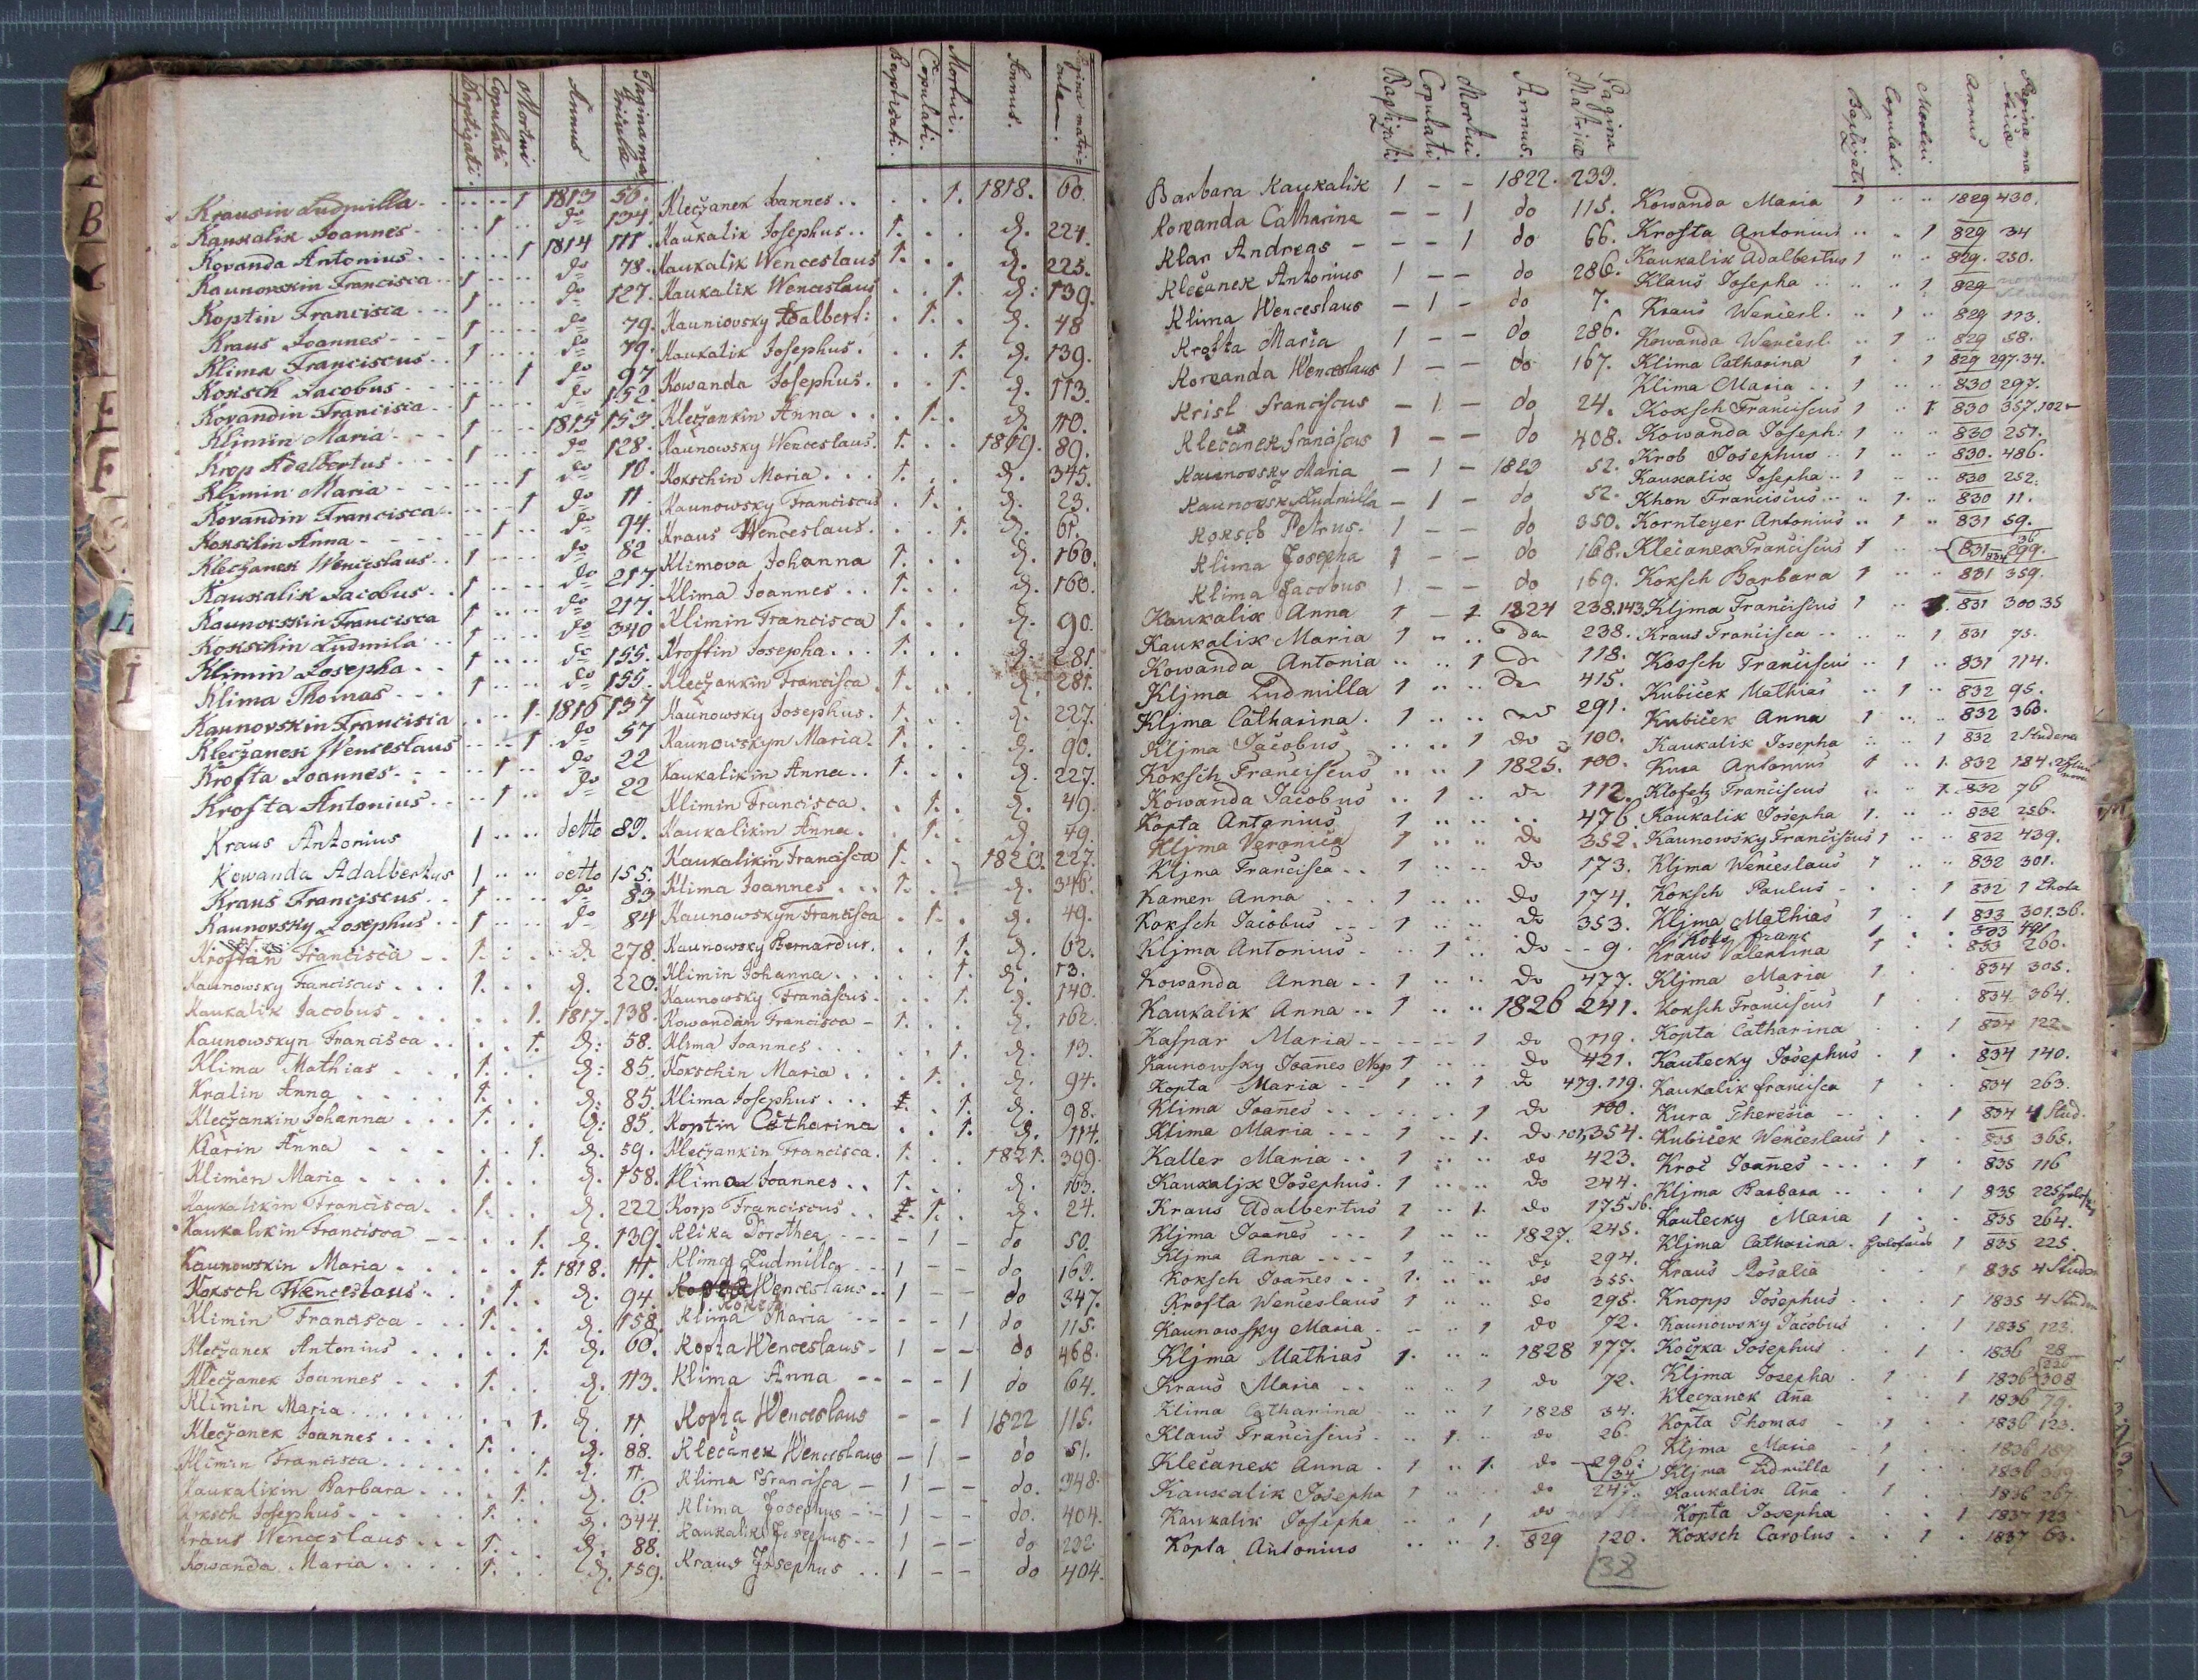 Baptizati. Copulati Mortui Annus Pagina matriculæ
Krausin Ludmilla 1 1813 56.
Kaukalik Joannes 1 do 134.
Kovanda Antonius 1 1814 111.
Kaunovskin Francisca 1 do 78.
Koptin Francisca 1 do 127.
Kraus Joannes 1 do 79.
Klima Franciscus 1 do 79.
Koksch Jacobus 1 do 97
Kovandin Francisca 1 do 152.
Klimin Maria 1 1815 153.
Krop Adalbertus 1 do 128.
Klimin Maria 1 do 10.
Kovandin Francisca 1 do 11.
Kokschin Anna 1 do 94.
Kleczanek Wenceslaus 1 do 82
Kaukalik Jacobus 1 do 217
Kaunovskin Francisca 1 do 217.
Kokschin Ludmila 1 do 340
Klimin Josepha 1 do 155.
Klima Thomas 1 do 155.
Kaunovskin Francisca 1 1816 137
Kleczanek Wenceslaus 1 do 57
Krofta Joannes 1 do 22
Krofta Antonius 1 do 22
Kraus Antonius 1 detto 83.
Kowanda Adalbertus 1 detto 155.
Kraus Franciscus 1 do 83
Kaunovsky Josephus 1 do 84
Francisca 1. d. 278.
Kaunowsky Franciscus 1. d. 220.
Kaukalik Jacobus 1. 1817. 138.
Kaunowskyn Francisca 1. d: 58.
Klima Mathias 1. d: 85.
Kralin Anna 1. d. 85.
Kleczankin Johanna 1. d: 85.
Klarin Anna 1. d. 59.
Klimin Maria 1. d. 158.
Kaukalikin Francisca 1. d. 222
Kaukalikin Francisca 1. d. 139.
Kaunowskin Maria 1. 1818. 11.
Koksch Wenceslaus 1. d. 94
Klimin Francisca 1. d. 158.
Kleczanek Antonius 1. d. 60.
Kleczanek Joannes 1. d. 113.
Klimin Maria 1. d. 11.
Kleczanek Joannes 1. d. 88.
Klimin Francisca 1. d. 11.
Kaukalikin Barbara 1. d. 6.
Koksch Josephus 1. d. 344.
Kraus Wenceslaus 1. d. 88.
Kowanda Maria 1. d. 159.
Baptisati. Copulati. Mortui. Annus. Pagina matriculæ.
Kleczanek Joannes 1. 1818. 60.
Kaukalik Josephus 1. d. 224.
Kaukalik Wenceslaus 1. d. 225.
Kaukalik Wenceslaus 1. d: 139.
Kauniovsky Adalbert: 1. d. 48
Kaukalik Josephus. 1. d. 139.
Kowanda Josephus. 1. d. 113.
Kleczankin Anna 1. d. 10.
Kaunowsky Wenceslaus. 1. 1819. 89.
Kokschin Maria 1. d. 345.
Kaunowsky Franciscus 1. d. 23.
Kraus Wenceslaus. 1. d. 61.
Klimova Johanna 1. d. 160.
Klima Joannes 1. d. 160.
Klimin Francisca 1. d. 90.
Kroftin Josepha 1. d. 281.
Kleczankin Francisca 1. d. 281.
Kaunowsky Josephus. 1. d. 227.
Kaunowskyn Maria. 1. d. 90.
Kaukalikin Anna 1. d. 227.
Klimin Francisca. 1. d. 49.
Kaukalikin Anna. 1. d. 49.
Kaukalikin Francisca 1. 1820. 227.
Klima Joannes 1. d. 346.
Kaunowskyn Francisca 1. d. 49.
Kaunowsky Bernardus. 1. d. 62.
Klimin Johanna 1. d. 13.
Kaunowsky Franciscus. 1. d. 140.
Kowandan Francisca 1. d. 162.
Klima Joannes 1. d. 13.
Kokschin Maria 1. d. 94.
Klima Josephus 1. d. 98.
Koptin Catharina 1. d. 114.
Kleczankin Francisca. 1. 1821. 399.
Klima Joannes 1. d. 163.
Korp Franciscus 1. d. 24.
Klika Dorothea - 1 - do 50.
Klima Ludmilla 1 - - do 163.
Wenceslaus 1 - - do 347.
Koksch
Klima Maria - - 1 do 115.
Kopta Wenceslaus 1 - - do 468.
Klima Anna - - 1 do 64.
Kopta Wenceslaus - - 1 1822 115.
Klecanek Wenceslaus - 1 - do 51.
Klima Francisca 1 - - do. 348.
Klima Josephus 1 - - do. 404.
Kaukalik Josephus 1 - - do 232
Kraus Josephus 1 - - do 404.
Baptizati Copulati Mortui Annus. Pagina Matricæ
Barbara Kaukalik 1 - - 1822. 233.
Kowanda Catharina - - 1 do 115.
Klar Andreas - - 1 do 66.
Klečanek Antonius 1 - - do 286.
Klima Wenceslaus - 1 - do 7.
Krofta Maria 1 - - do 286.
Kowanda Wenceslaus 1 - - do 167.
Krisl Franciscus - 1 - do 24.
Klečanek Franciscus 1 - - do 408.
Kaunovsky Maria - 1 - 1823 52.
Kaunovsky Ludmilla - 1 - do 52.
Koksch Petrus. 1 - - do 350.
Klima Josepha 1 - - do 168.
Klima Jacobus 1 - - do 169.
Kaukalik Anna 1 - 1 1824 238.143
Kaukalik Maria 1 do 238.
Kowanda Antonia 1 do 118.
Kljma Ludmilla 1 do 415.
Klima Catharina. 1 291.
Kljma Jacobus 1 do 100.
Koksch Franciscus 1 1825. 100.
Kowanda Jacobus 1 do 112.
Kopta Antonius 1 476
Kljma Veronica 1 do 352.
Kljma Francisca 1 do 173.
Kamen Anna 1 do 174.
Koksch Jacobus 1 do 353.
Kljma Antonius 1 do 9.
Kowanda Anna 1 do 477.
Kaukalik Anna 1 1826 241.
Kaspar Maria 1 do 119.
Kaunowsky Joanes Nep 1 do 421.
Kopta Maria 1 1 do 479.119.
Klima Joanes 1 do 100.
Klima Maria 1 1. do 101,354.
Kaller Maria 1 do 423.
Kaukaljk Josephus. 1 do 244.
Kraus Adalbertus 1 1. do 175.16.
Kljma Joanes 1 1827. 245.
Kljma Anna 1 do 294.
Koksch Joanes 1. do 355.
Krofta Wenceslaus 1 do 295.
Kaunowsky Maria 1 do 72.
Kljma Mathias 1. 1828 177.
Kraus Maria 1 do 72.
Klima Catharina 1 1828 34.
Klaus Franciscus 1. do 26.
Klečanek Anna 1 1. do 296. 134
Kaukalik Josepha 1 do 247.
Kaukalik Josepha 1 do
Kopta Antonius 1. 829 120.
38
Baptizati Copulati Mortui Annus Pagina matricæ
Kowanda Maria 1 1829 430.
Krosta Antonius 1 829 34
Kaukalik Adalbertus 1 829. 250.
Klaus Josepha 1 829
Kraus Wencesl. 1 829 113.
Kowanda Wencesl. 1 829 58.
Klima Catharina 1 1 829 297.34.
Klima Maria 1 830 297.
Koksch Franciscus 1 1. 830 357.102
Kowanda Joseph: 1 830 251.
Krob Josephus 1 830. 486.
Kaukalik Josepha 1 830 252.
Khon Franciscus 1. 830 11.
Kornteyer Antonius 1 831 59.
Klečanek Franciscus 1 831 299.
Koksch Barbara 1 831 359.
Kljma Franciscus 1 1. 831 300 35
Kraus Francisca 1 831 75.
Koksch Franciscus 1 831 114.
Kubiček Mathias 1 832 95.
Kubiček Anna 1 832 360.
Kaukalik Josepha 1 832 2 Studena
Kura Antonius 1 1. 832 184.
Klofetz Franciscus 1. 832 76
Kaukalik Josepha 1. 832 256.
Kaunowsky Franciscus 1 832 439.
Kljma Wenceslaus 1 832 301.
Koksch Paulus 1 832 1 Lhota
Kljma Mathias 1 1 833 301.36.
Koks Franc
Kraus Valentina 1 833 260.
Kljma Maria 1 834 305.
Koksch Franciscus 1 834 364.
Kopta Catharina 1 834 122
Kautecky Josephus 1 834 140.
Kaukalik Francisca 1 834 263.
Kura Theresia 1 834 4 Stud.
Kubiček Wenceslaus 1 835 365.
Kroč Joanes 1 835 116
Kljma Barbara 1 835 225
Kautecky Maria 1 835 264.
Kljma Catharina 1 835 225
Kraus Rosalia 1 835 4 Studen
Knopp Josephus 1 1835 4 Studen
Kaunowsky Jacobus 1 1835 123.
Koczka Josephus 1 1836 28
Kljma Josepha 1 1 1836 308
Kleczanek Ana 1 1836 79.
Kopta Thomas 1 1836 123.
Kljma Maria 1 1836 189
Kljma Ludmilla 1 1836
Kaukalik Ana 1 1836 267
Kopta Josepha 1 1837 123
Koksch Carolus 1 1837 63.
B
E
F
H
I